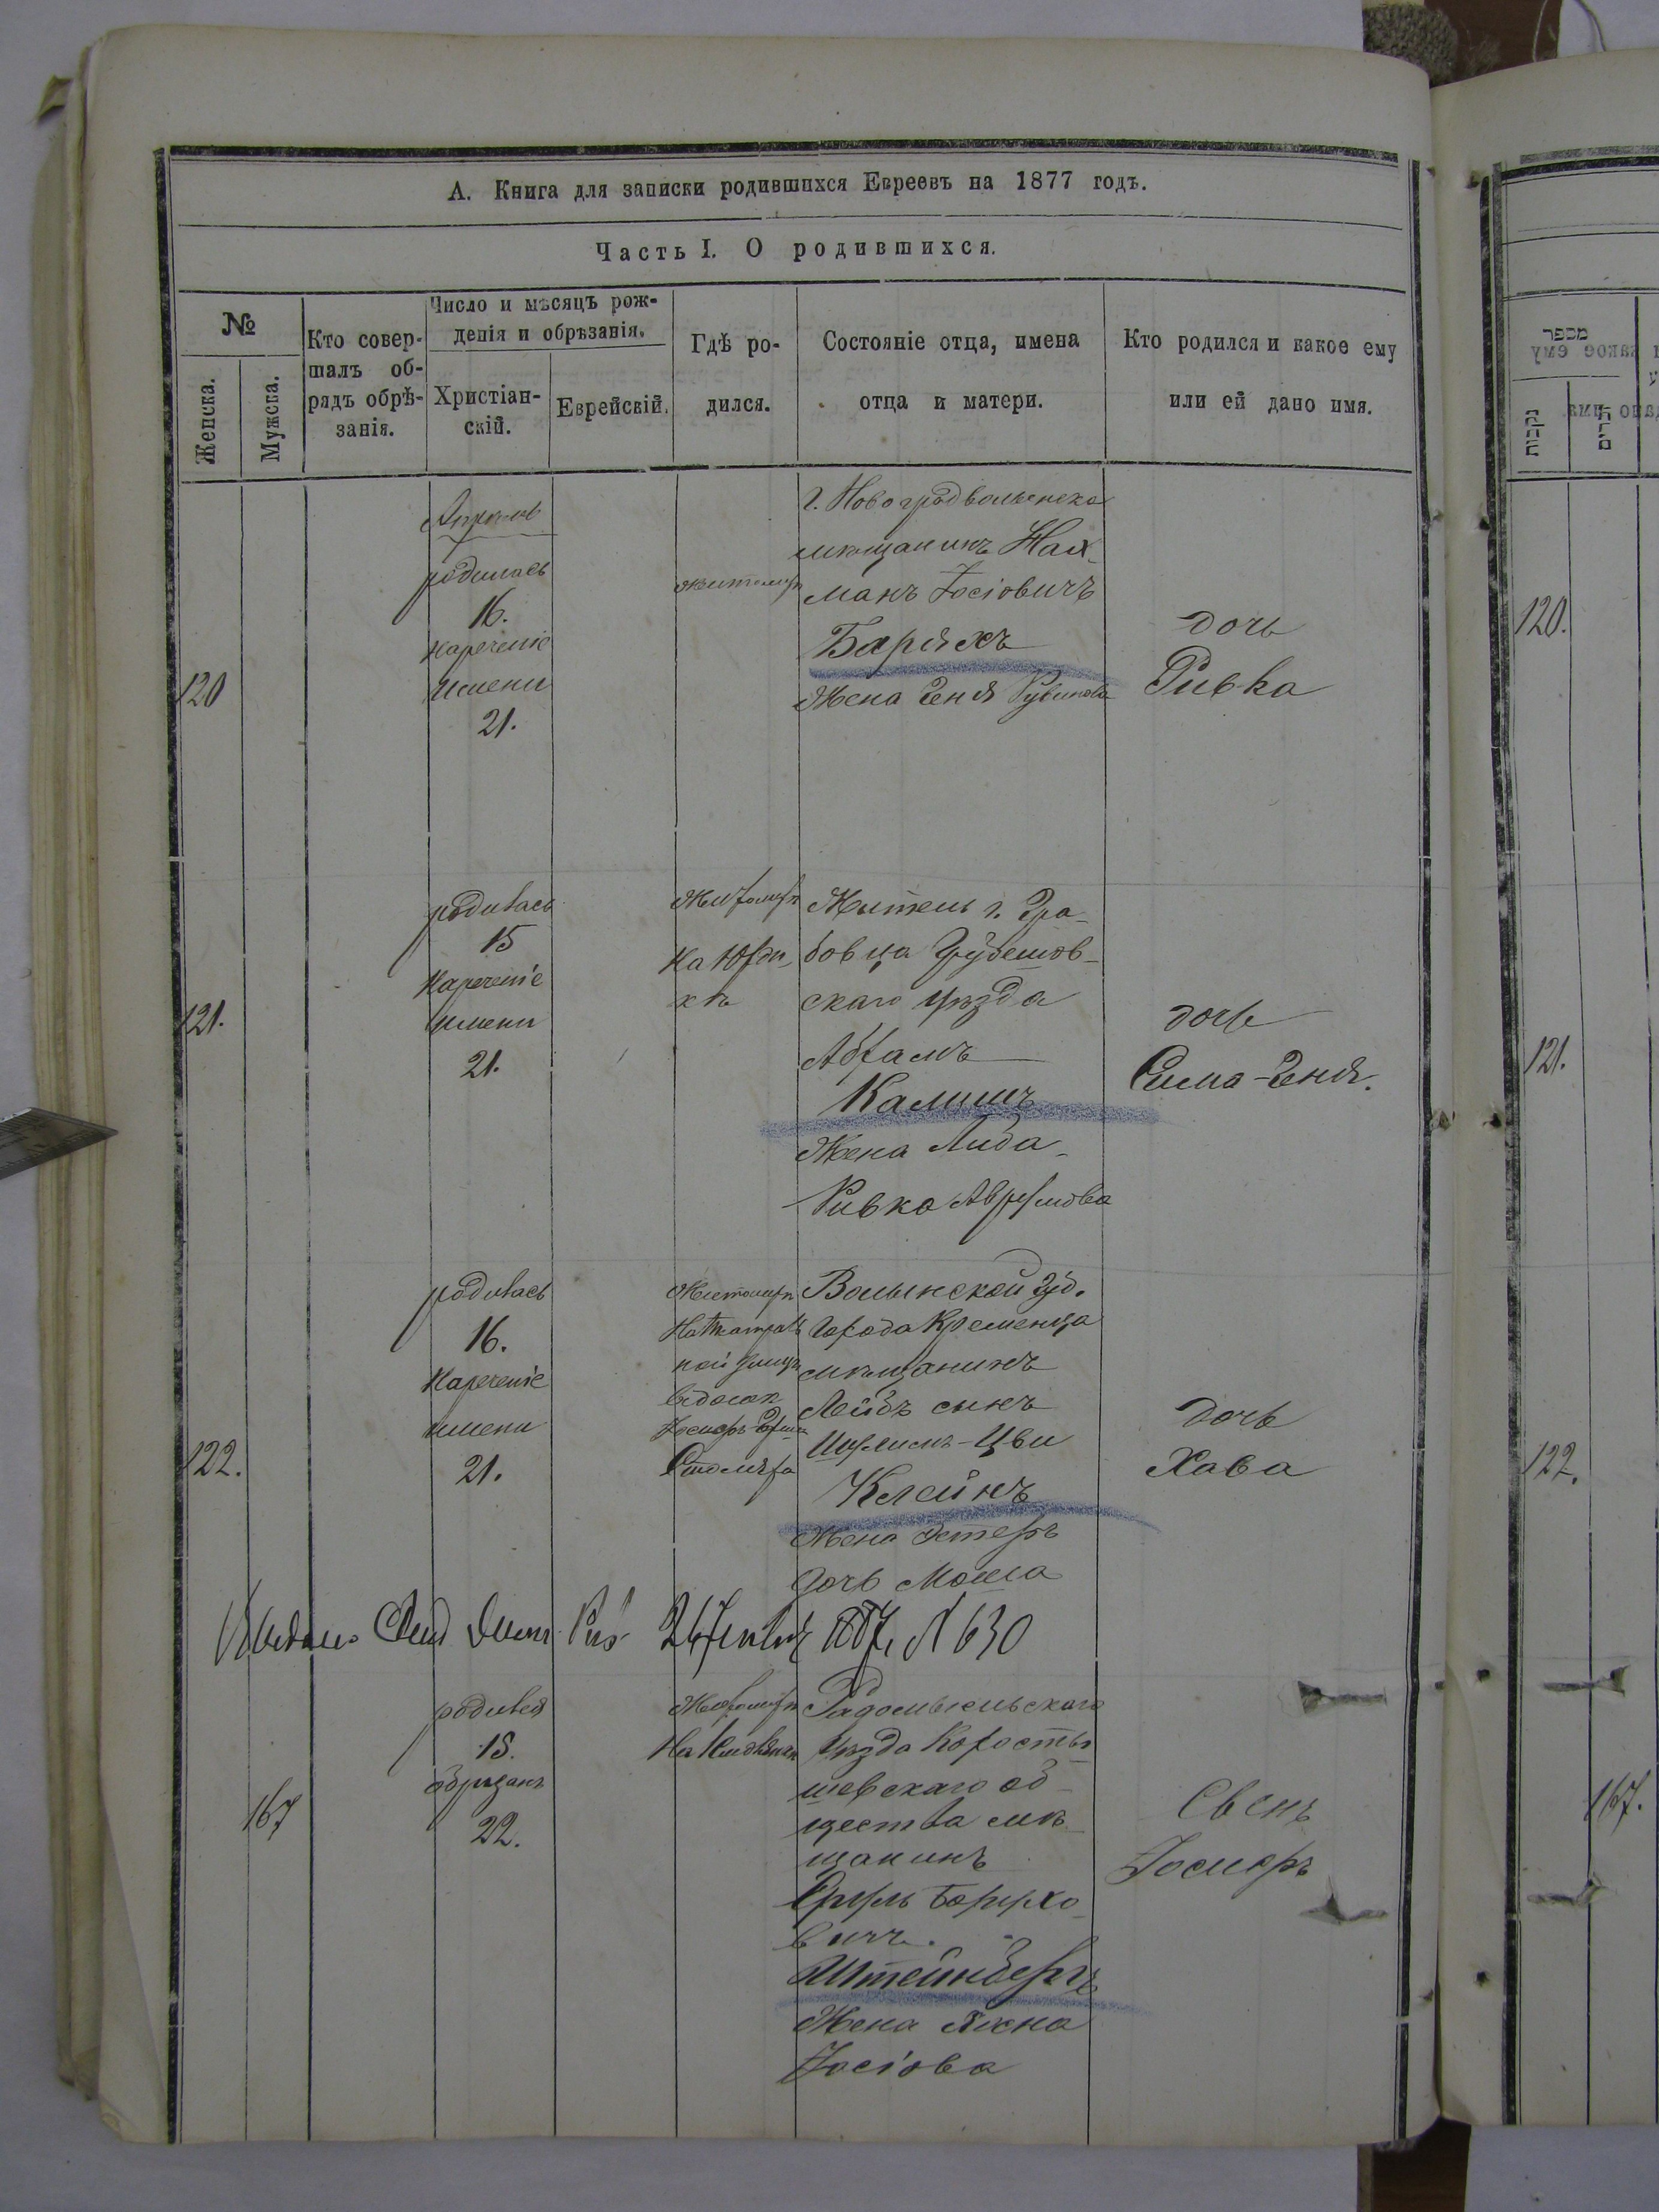 А. Книга для записки родившихся Евреевъ на 1877 годъ.
Часть I. О родившихся.
№
Женска.
Мужска.
Кто совер-
шалъ об-
рядъ обрѣ-
занія.
Число и мѣсяцъ рож-
денія и обрѣзанія.
Христіан-
скій.
Еврейскій.
Гдѣ ро-
дился.
Состояніе отца, имена
отца и матери.
Кто родился и какое ему
или ей дано имя.
120
родилась
16.
нареченіе
имени
21.
Житомирѣ
г. Новоградволынска
мѣщанинъ Нах-
манъ Іосіовичъ
Баряхъ
Жена Геня Рувинова
дочь
Ривка
121.
родилась
15
Нареченіе
имени
21.
Житомирѣ
Житель г. Гра-
бовца Грубешов-
скаго уѣзда
Абрамъ
Калишъ
Жена Либа-
Ривка
дочь
Сима-Геня.
122.
родилась
16.
Нареченіе
имени
21.
Житомирѣ
Волынской Губ.
Города Кременца
мѣщанинъ
Лейбъ сынъ
Цви
Клейнъ
Жена Эстеръ
дочь Мошка
дочь
Хава
№ 630
167
родился
15.
обрѣзанъ
22.
Житомирѣ
Радомысльскаго
уѣзда Коросты-
шевскаго об-
щества мѣ-
щанинъ
Срулъ Борухо-
вичъ.
Штейнбергъ
Жена
Іосіова
Сынъ
Іосифъ
מספר
נקבות
זכרים
120.
121.
122.
167.